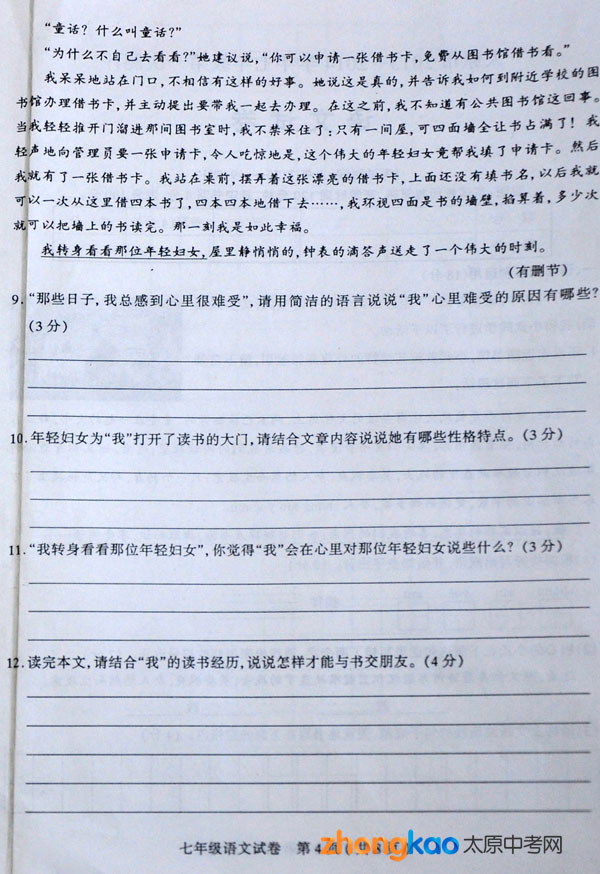 “童话?什么叫童话?”
“为什么不自己去看看?”她建议说,“你可以申请一张借书卡,免费从图书馆借书看。”
我呆呆地站在门口,不相信有这样的好事。她说这是真的,并告诉我如何到附近学校的图
书馆办理借书卡,并主动提出要带我一起去办理。在这之前,我不知道有公共图书馆这回事。
当我轻轻推开门溜进那间图书室时,我不禁呆住了:只有一间屋,可四面墙全让书占满了!我
轻声地向管理员要一张申请卡,令人吃惊地是,这个伟大的年轻妇女竟帮我填了申请卡。然后
我就有了一张借书卡。我站在桌前,摆弄着这张漂亮的借书卡,上面还没有填书名,以后我就
可以一次从这里借四本书了,四本四本地借下去……,我环视四面是书的墙壁,掐算着,多少次
就可以把墙上的书读完。那一刻我是如此幸福。
我转身看看那位年轻妇女,屋里静悄悄的,钟表的滴答声送走了一个伟大的时刻。
(有删节)
9.“那些日子,我总感到心里很难受”,请用简洁的语言说说“我”心里难受的原因有哪些?
(3分)
10.年轻妇女为“我”打开了读书的大门,请结合文章内容说说她有哪些性格特点。(3分)
11.“我转身看看那位年轻妇女”,你觉得“我”会在心里对那位年轻妇女说些什么?(3分)
12.读完本文,请结合“我”的读书经历,说说怎样才能与书交朋友。(4分)
七年级语文试卷 第4页(共8页)
zhongkao太原中考网